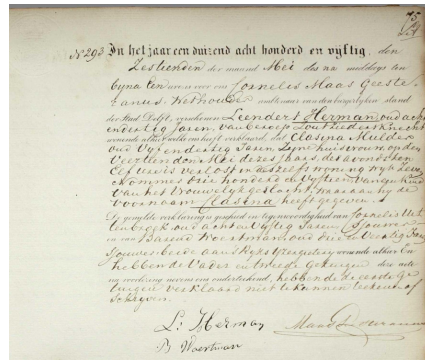 75
No 293 In het jaar een duizend acht honderd en vijftig, den
Zestienden der maand Mei des na middags ten
ure voor ons Cornelis Maas Geeste-
ranus Wethouder ambtenaar van den burgerlijken stand
der Stad Delft, verschenen Leendert Herman, oud acht
endertig Jaren, van beroep Zoutzieders Knecht
wonende alhier welke ons heeft verklaard, dat Clasina Mulder
oud Vijf endertig Jaren, Zijne huisvrouw, op den
Veertienden Mei dezes jaars, des avonds ten
Elf ure is verlost in deszelfs woning wijk
Nommer honderd en Vijftien, van een kind
van het Vrouwelijk geslacht, waaraan hij de
voornaam Clasina heeft gegeven.
De gemelde verklaring is geschied in tegenwoordigheid van Cornelis
oud acht en Vijftig Jaren, Sjouwer
en van Barend Woertman, oud drie en Veertig Jaren
Sjouwer beide aan 's Rijks Magazijn wonende alhier En
hebben de Vader en tweede getuigen deze acte
na voorlezing nevens ons onderteekend, hebbende eerste Ge-
tuigen verklaard niet te kunnen teekenen of
Schrijven.
L: Herman
B Woertman